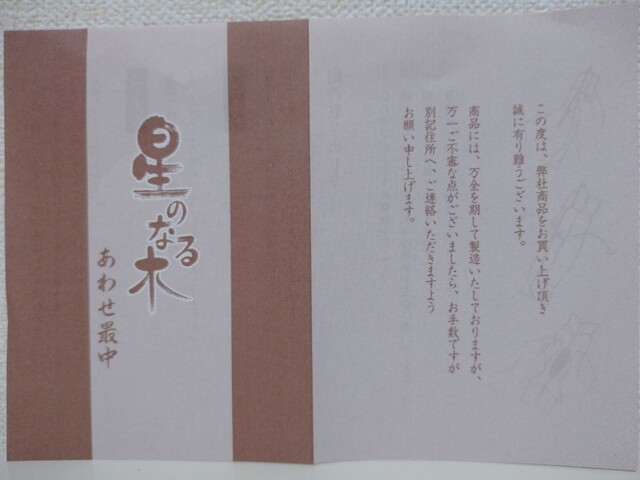 この度は、弊社商品をお買い上げ頂き
誠に有り難うございます。
商品には、万全を期して製造いたしておりますが、
万一ご不審な点がございましたら、お手数ですが
別記住所へ、ご連絡いただきますよう
お願い申し上げます。
星のなる木
あわせ最中